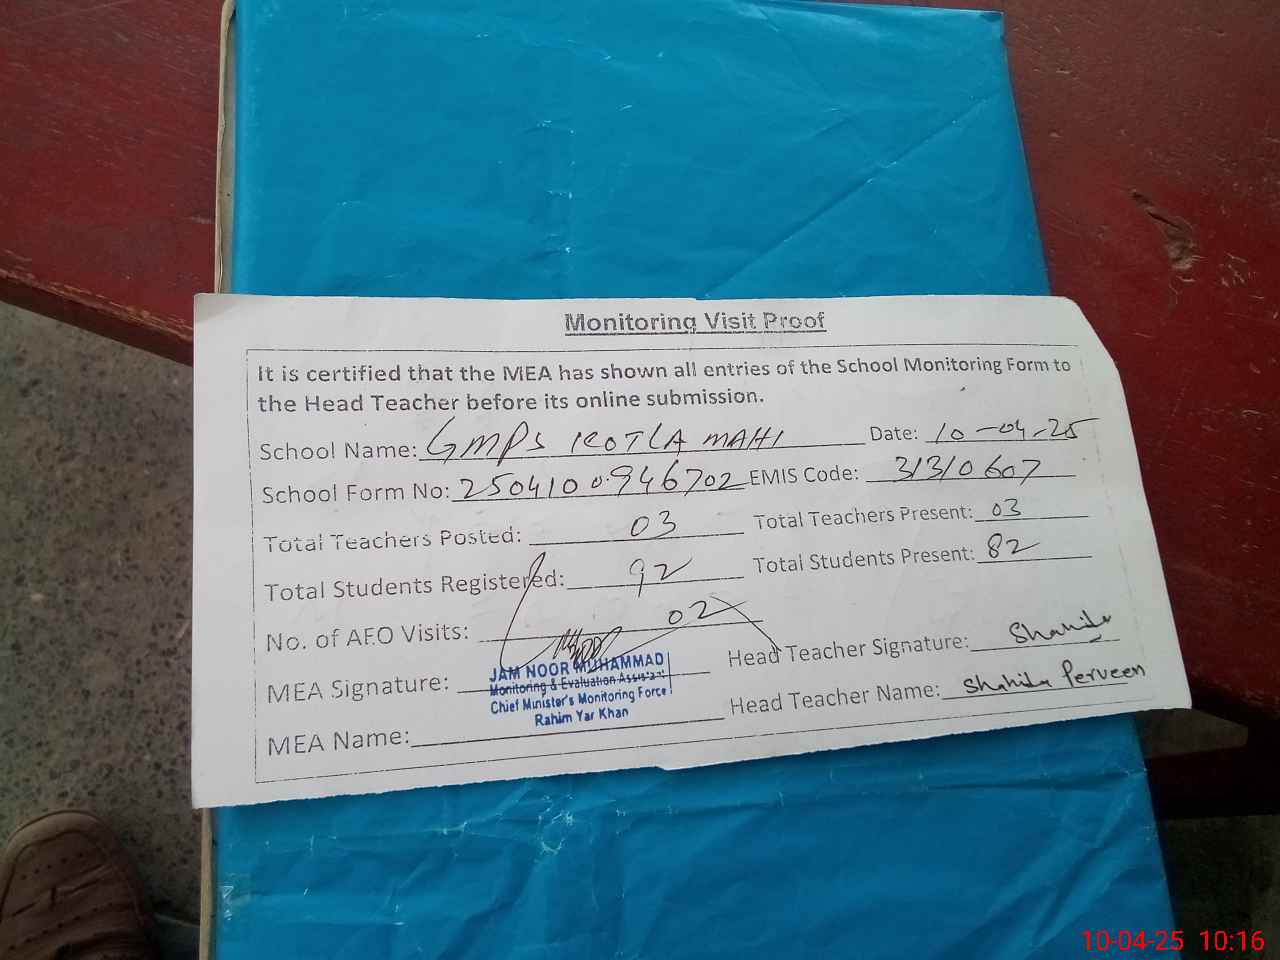 Monitoring Visit Proof
It is certified that the MEA has shown all entries of the School Monitoring Form to
the Head Teacher before its online submission.
School Name: GMPS KOTLA MAHI Date: 10-04-25
School Form No: 2504100946702 EMIS Code: 31310607
Total Teachers Posted: 03 Total Teachers Present: 03
Total Students Registered: 92 Total Students Present: 82
No. of AEO Visits: 02
MEA Signature: Head Teacher Signature: Shahida
JAM NOOR MUHAMMAD
Monitoring & Evaluation Assistant
Chief Minister's Monitoring Force
Rahim Yar Khan
MEA Name: Head Teacher Name: Shahida Perveen
10-04-25 10:16